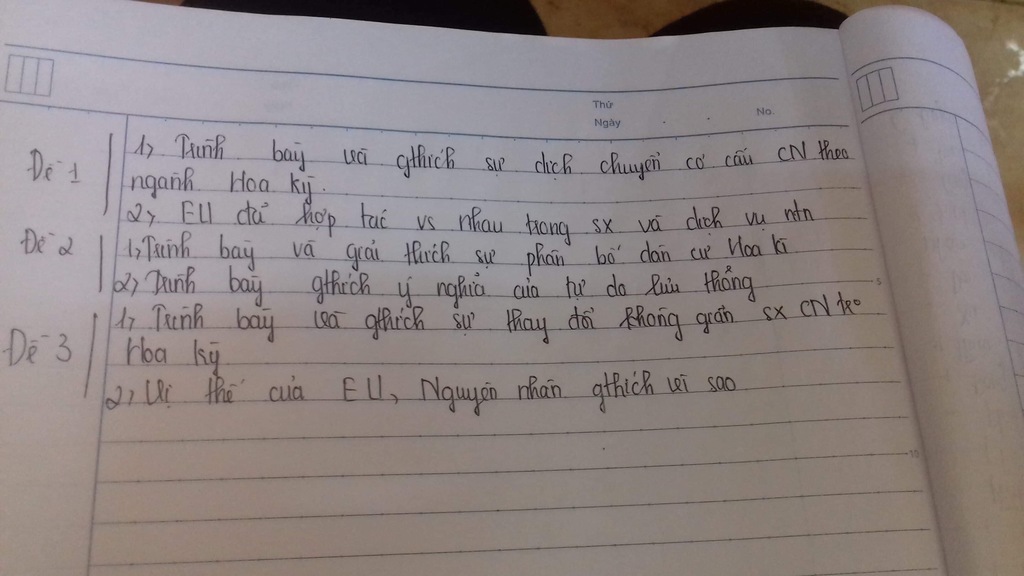 Thứ
Ngày
No.
Đề 1
1, Trình bày và gthích sự dịch chuyển cơ cấu CN theo
ngành Hoa kỳ.
2, EU đã hợp tác vs nhau trong sx và dịch vụ ntn
Đề 2
1, Trình bày và giải thích sự phân bố dân cư Hoa kì
2, Trình bày gthích ý nghĩa của tự do lưu thông
Đề 3
1, Trình bày và gthích sự thay đổi không gian sx CN
Hoa kỳ
2, Vị thế của EU, Nguyên nhân gthích vì sao
5
10